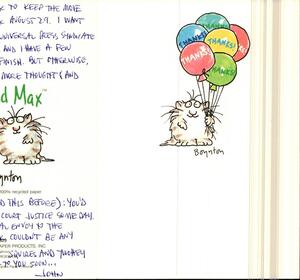 TO KEEP THE MOVE
AUGUST 29. I WANT
UNIVERSAL PRESS SYNDICATE
AND I HAVE A FEW
FINISH. BUT OTHERWISE,
MORE THOUGHT (AND
d Max™
ynton
100% recycled paper
D THIS BEFORE): YOU'D
COURT JUSTICE SOMEDAY.
AL ENVOY TO THE
COULDN'T BE ANY
APER PRODUCTS, INC.
SQUIRES AND
TO YOU SOON...
—JOHN
THANKS!
THANKS!
THANKS!
THANKS!
Boynton